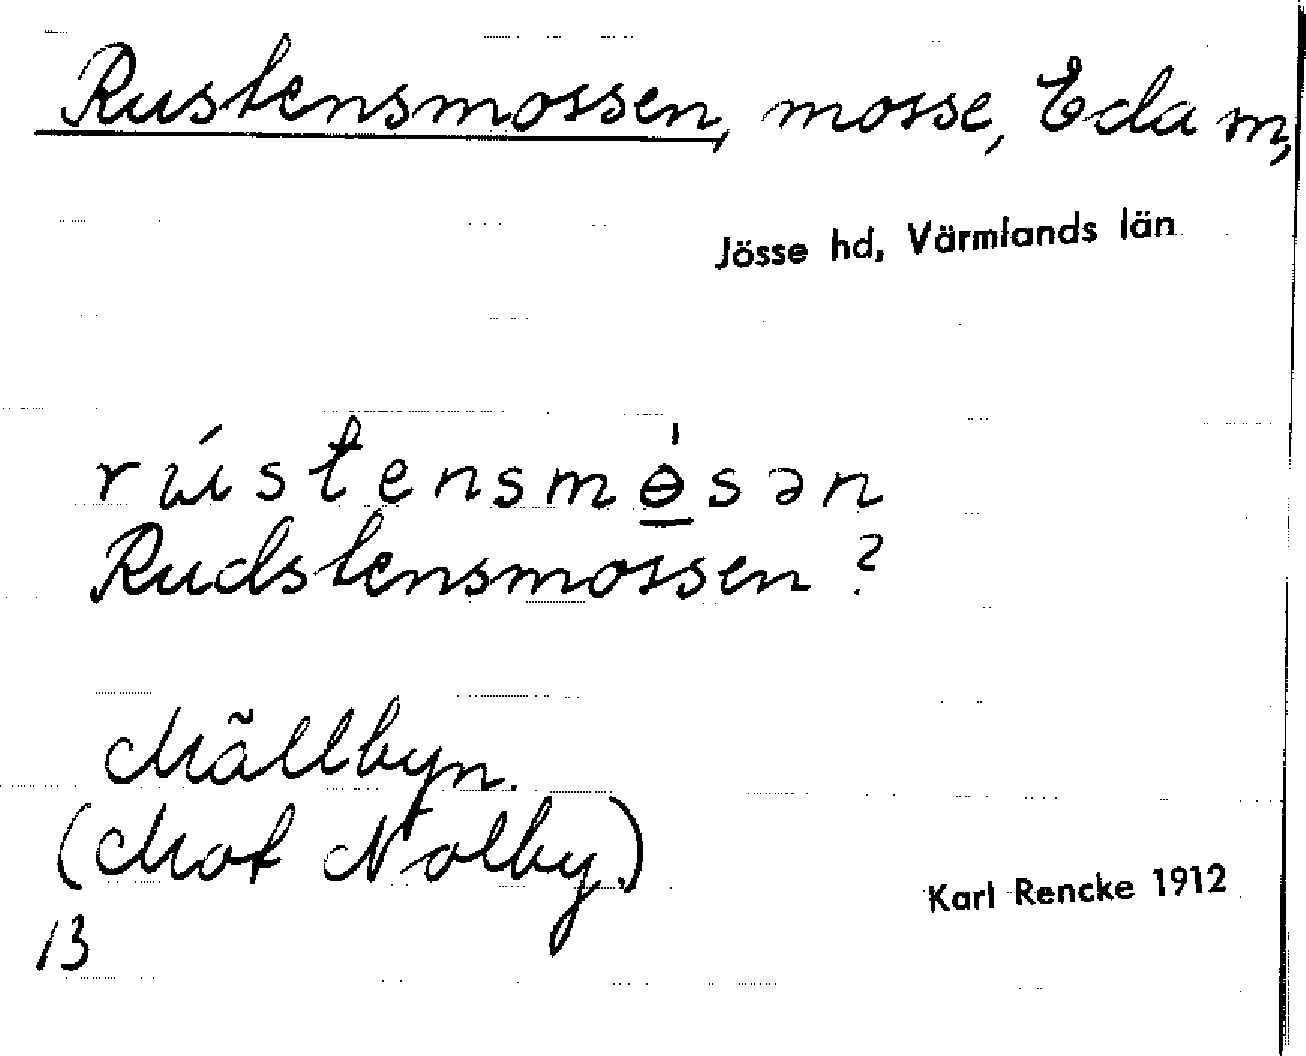 Rustensmossen, mosse, Eda m,
Jösse hd, Värmlands län
rústensmɵ̠́sən
Rudstensmossen?
Mällbyn.
(Mot Nolby.)
Karl Rencke 1912
13